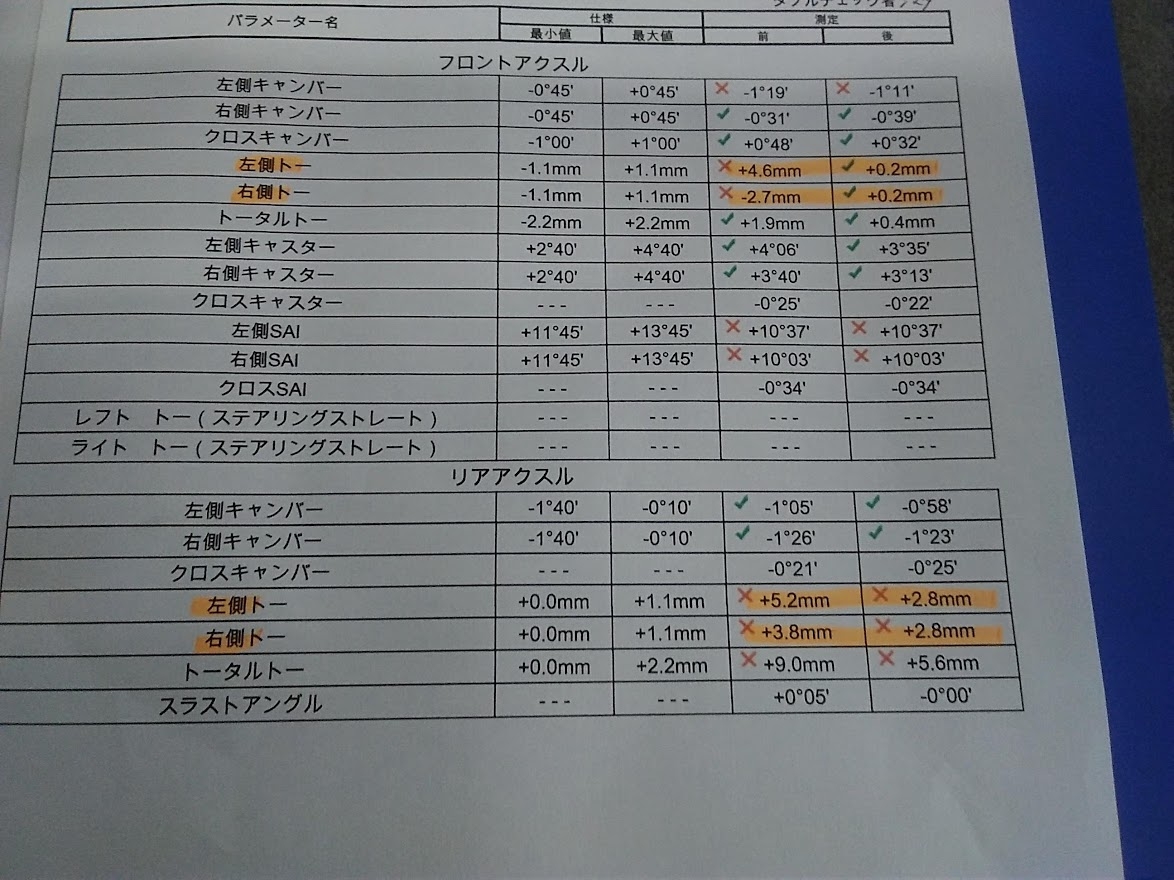 ダブルチェック者
パラメーター名 仕様 測定
最小値 最大値 前 後
フロントアクスル
左側キャンバー -0°45' +0°45' ✕ -1°19' ✕ -1°11'
右側キャンバー -0°45' +0°45' ✓ -0°31' ✓ -0°39'
クロスキャンバー -1°00' +1°00' ✓ +0°48' ✓ +0°32'
左側トー -1.1mm +1.1mm ✕ +4.6mm ✓ +0.2mm
右側トー -1.1mm +1.1mm ✕ -2.7mm ✓ +0.2mm
トータルトー -2.2mm +2.2mm ✓ +1.9mm ✓ +0.4mm
左側キャスター +2°40' +4°40' ✓ +4°06' ✓ +3°35'
右側キャスター +2°40' +4°40' ✓ +3°40' ✓ +3°13'
クロスキャスター --- --- -0°25' -0°22'
左側SAI +11°45' +13°45' ✕ +10°37' ✕ +10°37'
右側SAI +11°45' +13°45' ✕ +10°03' ✕ +10°03'
クロスSAI --- --- -0°34' -0°34'
レフト トー(ステアリングストレート) --- --- --- ---
ライト トー(ステアリングストレート) --- --- --- ---
リアアクスル
左側キャンバー -1°40' -0°10' ✓ -1°05' ✓ -0°58'
右側キャンバー -1°40' -0°10' ✓ -1°26' ✓ -1°23'
クロスキャンバー --- --- -0°21' -0°25'
左側トー +0.0mm +1.1mm ✕ +5.2mm ✕ +2.8mm
右側トー +0.0mm +1.1mm ✕ +3.8mm ✕ +2.8mm
トータルトー +0.0mm +2.2mm ✕ +9.0mm ✕ +5.6mm
スラストアングル --- --- +0°05' -0°00'